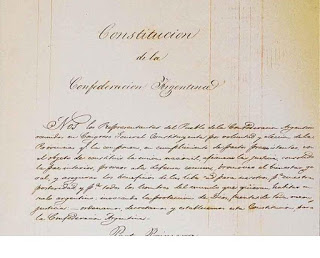 Constitucion
de la
Confederacion Argentina
Nos los Representantes del Pueblo de la Confederacion Argentina
reunidos en Congreso General Constituyente por voluntad y eleccion de las
Provincias q. la componen, en cumplimiento de pactos preexistentes con
el objeto de constituir la union nacional, afianzar la justicia, consolidar
la paz interior, proveer a la defensa comun, promover el bienestar gene
ral, y asegurar los beneficios de la libertad para nosotros, p.ª nuestra
posteridad y p.ª todos los hombres del mundo que quieran habitar el
suelo argentino; invocando la proteccion de Dios, fuente de toda razon y
justicia: ordenamos, decretamos y establecemos esta Constitucion para
la Confederacion Argentina.